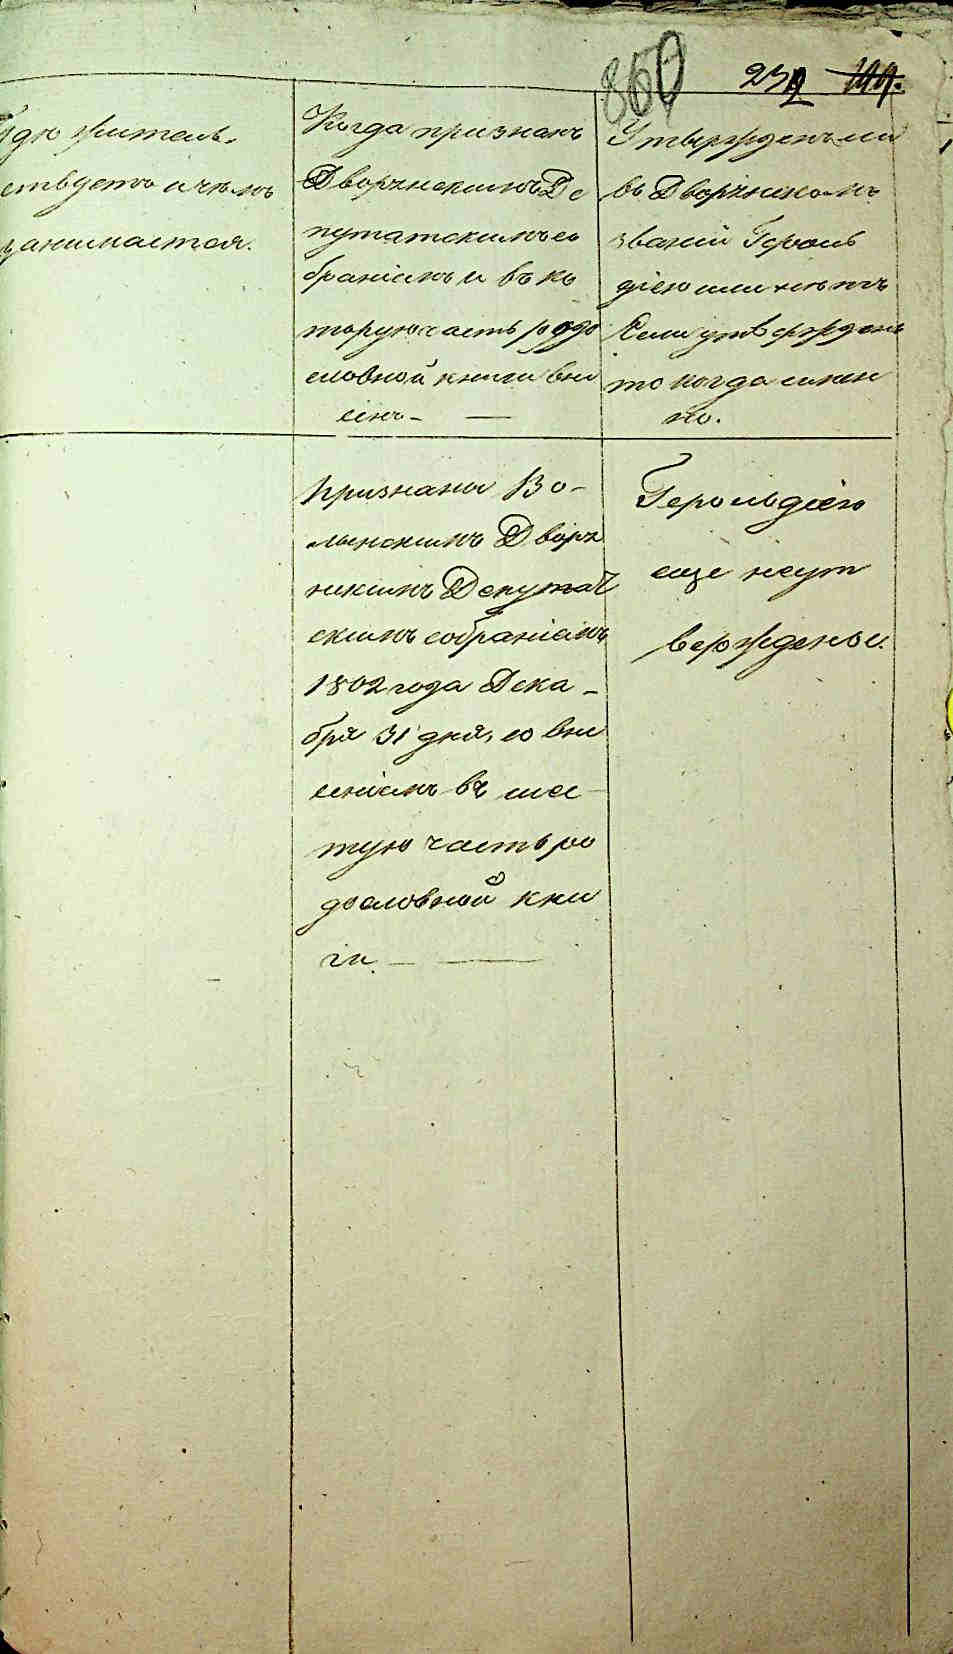 860
239 199.
Гдѣ житель-
ствуетъ и чѣмъ
занимается.
Когда признанъ
Дворянскимъ Де
путатскимъ со
браніемъ и въ ко
торую часть родо
словной книги вне
сенъ-
Утвержденъ ли
въ Дворянскомъ
званіи Героль
діею или нѣтъ
Если утвержденъ
то когда имен
но.
Признаны Во-
лынскимъ Дворя
нскимъ Депутат
скимъ собраніемъ
1802 года Дека-
бря 31 дня, со вне
сеніемъ въ шес
тую часть ро
дословной кни
ги.
Герольдіею
еще неут
верждены.